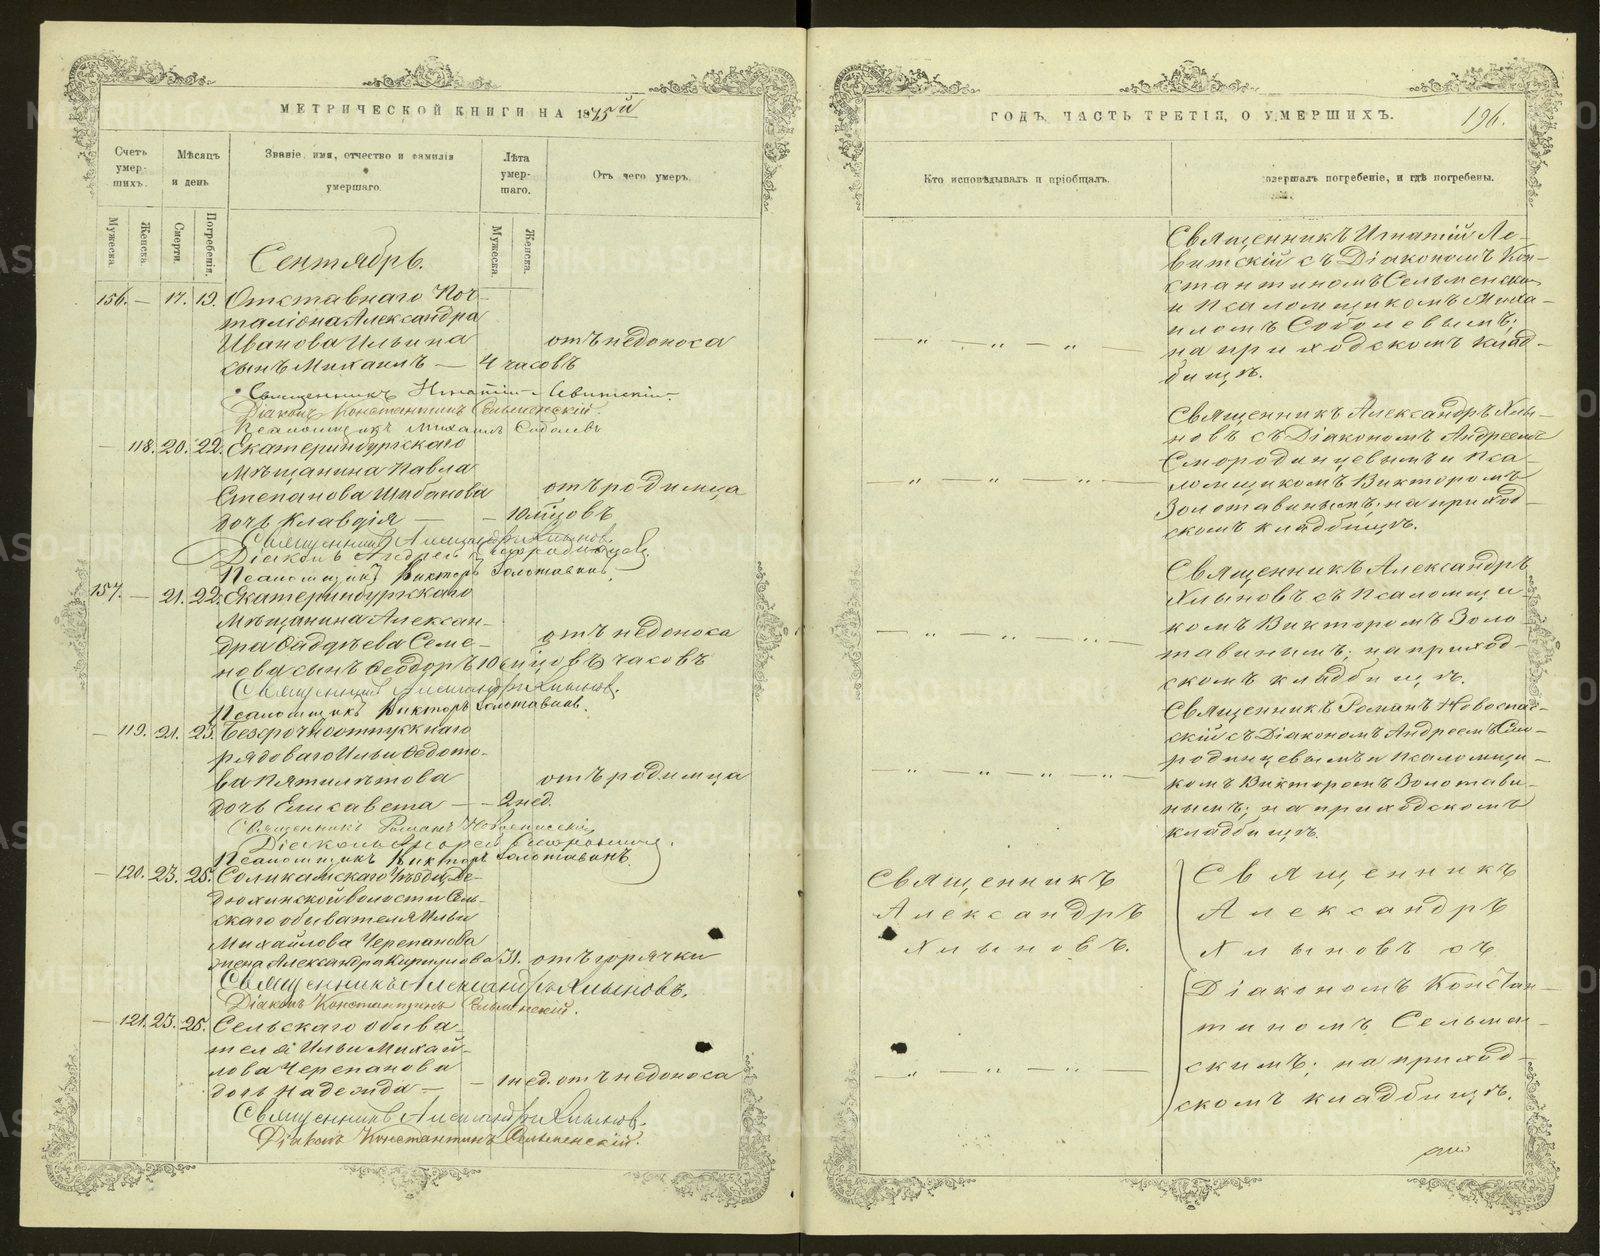 МЕТРИЧЕСКОЙ КНИГИ НА 1875й
Счетъ умер- шихъ.
Мѣсяцъ и день
Званіе, имя, отчество и фамилія умершаго.
Лѣта умер- шаго.
Отъ чего умеръ.
Мужеска.
Женска.
Смерти.
Погребенія.
Мужеска.
Женска.
Сентябрь.
156. — 17. 19. Отставнаго Поч-
таліона Александра
Иванова Ильина отъ недоноса
сынъ Михаилъ — 4 часовъ
Священникъ Игнатій Левитскій
Діаконъ Константинъ Сельменскій.
Псаломщикъ Михаилъ Соболевъ
— 118. 20. 22. Екатеринбургскаго
Мѣщанина Павла
Степанова Шибанова отъ родимца
дочь Клавдія — — 10 м͠цовъ
Священникъ Александръ Хлыновъ.
Діаконъ Андрей Смородинцевъ.
Псаломщикъ Викторъ Золотавинъ.
157. — 21. 22. Екатеринбургскаго
Мѣщанина Алексан-
дра Фаддѣева Семе- отъ недоноса
нова сынъ Ѳеодоръ 10 часовъ
Священникъ Александръ Хлыновъ.
Псаломщикъ Викторъ Золотавинъ.
— 119. 21. 23. Безсрочноотпускнаго
рядоваго Ильи Ѳедото-
ва Пятилѣтова отъ родимца
дочь Елисавета — — 2 нед.
Священникъ Романъ Новоспасскій
Діаконъ Андрей Смородинцевъ.
Псаломщикъ Викторъ Золотавинъ
— 120. 23. 25. Соликамскаго уѣзда, Де-
дюхинской волости Сель-
скаго обывателя Ильи
Михайлова Черепанова
жена Александра Кирилова 31. отъ горячки
Священникъ Александръ Хлыновъ.
Діаконъ Константинъ Сельменскій.
— 121. 23. 25. Сельскаго обыва-
теля Ильи Михай-
лова Черепанова
дочь Надежда — — 1 нед. отъ недоноса
Священникъ Александръ Хлыновъ.
Діаконъ Константинъ Сельменскій.
ГОДЪ, ЧАСТЬ ТРЕТІЯ, О УМЕРШИХЪ. 196.
Кто исповѣдывалъ и пріобщалъ.
совершалъ погребеніе, и гдѣ погребены.
Священникъ Игнатій Ле-
витскій съ Діакономъ Кон-
стантиномъ Сельменским
и Псаломщикомъ Миха-
— „ — — „ — иломъ Соболевымъ;
на приходскомъ клад-
бищѣ.
Священникъ Александръ Хлы-
новъ съ Діакономъ Андреемъ
Смородинцевымъ и Пса-
— „ — „ — „ — ломщикомъ Викторомъ
Золотавинымъ; на приход-
скомъ кладбищѣ.
Священникъ Александръ
Хлыновъ съ Псаломщи-
— „ — „ — „ — комъ Викторомъ Золо-
тавинымъ; на приход-
скомъ кладбищѣ.
Священникъ Романъ Новоспас-
скій съ Діакономъ Андреемъ Смо-
родинцевымъ и Псаломщи-
— „ — „ — „ — „ — комъ Викторомъ Золотави-
нымъ; на приходскомъ
кладбищѣ.
Священникъ
Александръ
Хлыновъ.
Священникъ
Александръ
Хлыновъ съ
Діакономъ Констан-
тиномъ Сельмен-
скимъ; на приход-
— „ — „ — „ — скомъ кладбищѣ.